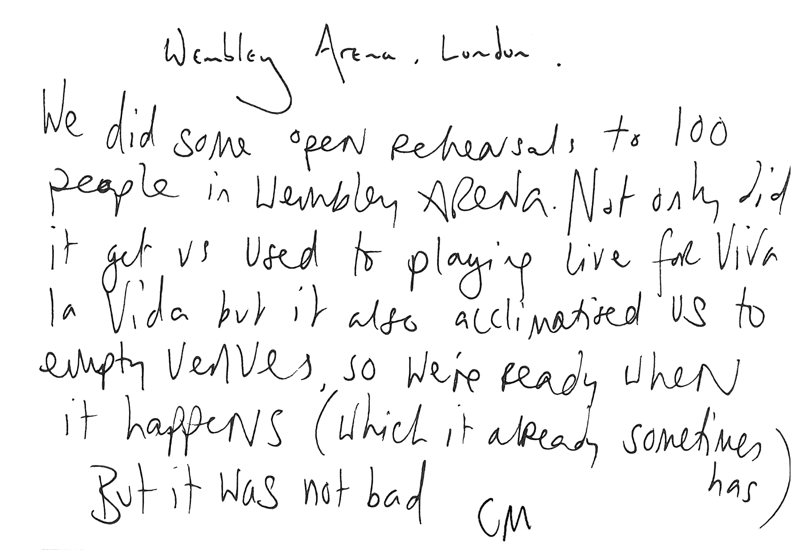 Wembley Arena. London.
We did some open rehearsals to 100
people in Wembley ARENA. Not only did
it get us used to playing live for Viva
la Vida but it also acclimatised us to
empty venues, so we're ready when
it happens (which it already sometimes
has)
But it was not bad
CM